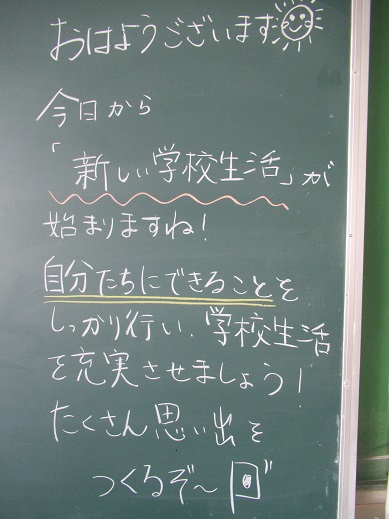 おはようございます
今日から
「新しい学校生活」が
始まりますね！
自分たちにできることを
しっかり行い、学校生活
を充実させましょう！
たくさん思い出を
つくるぞ〜